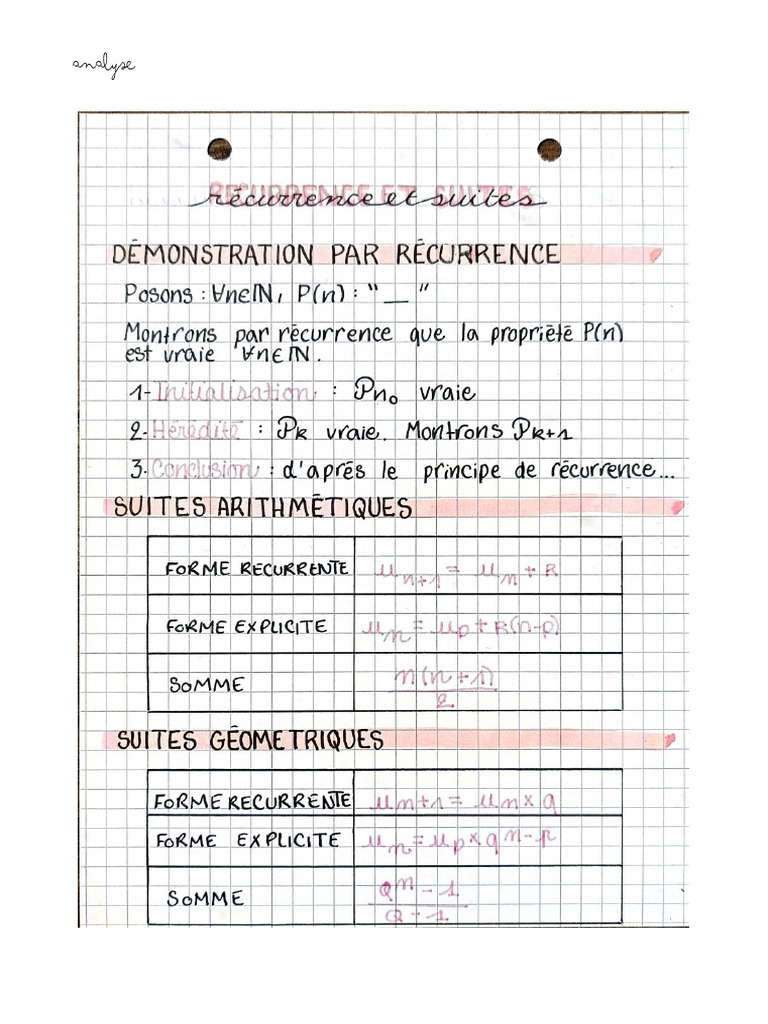 analyse
récurrence et suites
DÉMONSTRATION PAR RÉCURRENCE
Posons : ∀n∈ℕ, P(n) : “ __ ”
Montrons par récurrence que la propriété P(n)
est vraie ∀n∈ℕ.
1- Initialisation : Pn₀ vraie
2. Hérédité : Pk vraie. Montrons Pk+1
3. Conclusion : d'aprés le principe de récurrence...
SUITES ARITHMÉTIQUES
FORME RECURRENTE uₙ₊₁ = uₙ + R
FORME EXPLICITE uₙ = up + R(n-p)
SOMME n(n+1)/2
SUITES GÉOMETRIQUES
FORME RECURRENTE uₙ₊₁ = uₙ × q
FORME EXPLICITE uₙ = up × qⁿ⁻ᵖ
SOMME Qⁿ - 1 / Q - 1